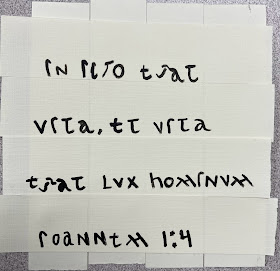 in ipso erat
vita, et vita
erat lvx hominvm
ioannem 1:4